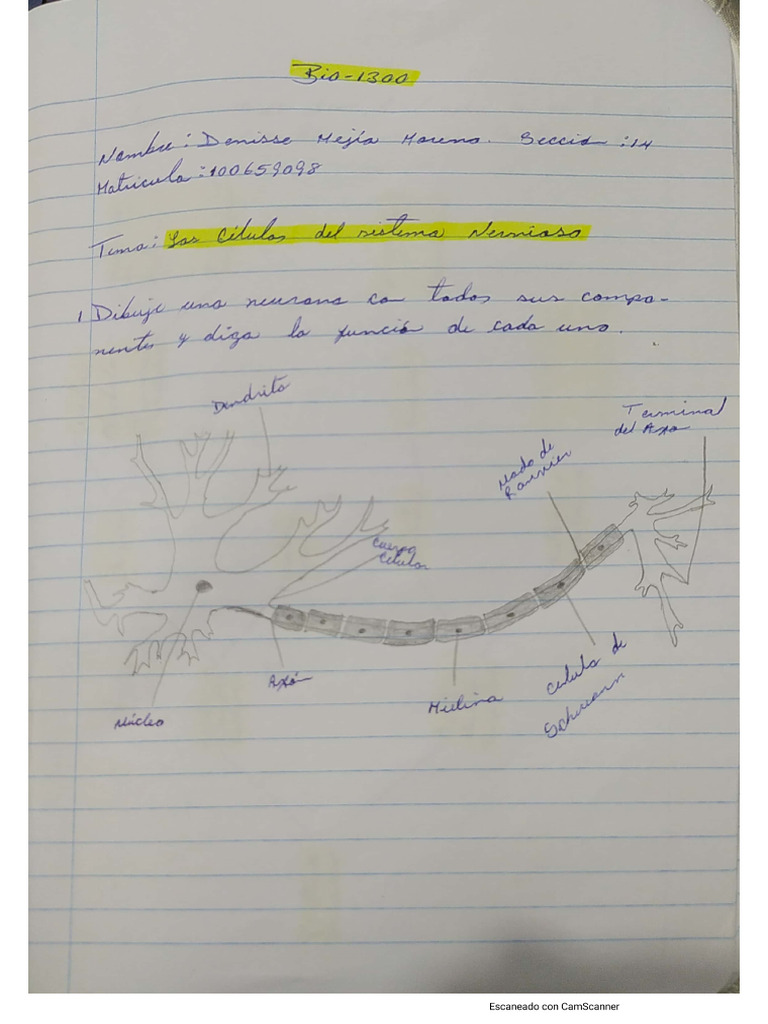 Bio-1300
Nombre: Denisse Mejía Moreno. Sección: 14
Matricula: 100659098
Tema: Las Células del sistema Nervioso
1 Dibuje una neurona con todos sus compo-
nentes y diga la función de cada uno.
Dendrita
Terminal
del Axón
Nodo de
Ranvier
Cuerpo
Celular
Axón
Núcleo
Mielina
Celula de
Schwann
Escaneado con CamScanner